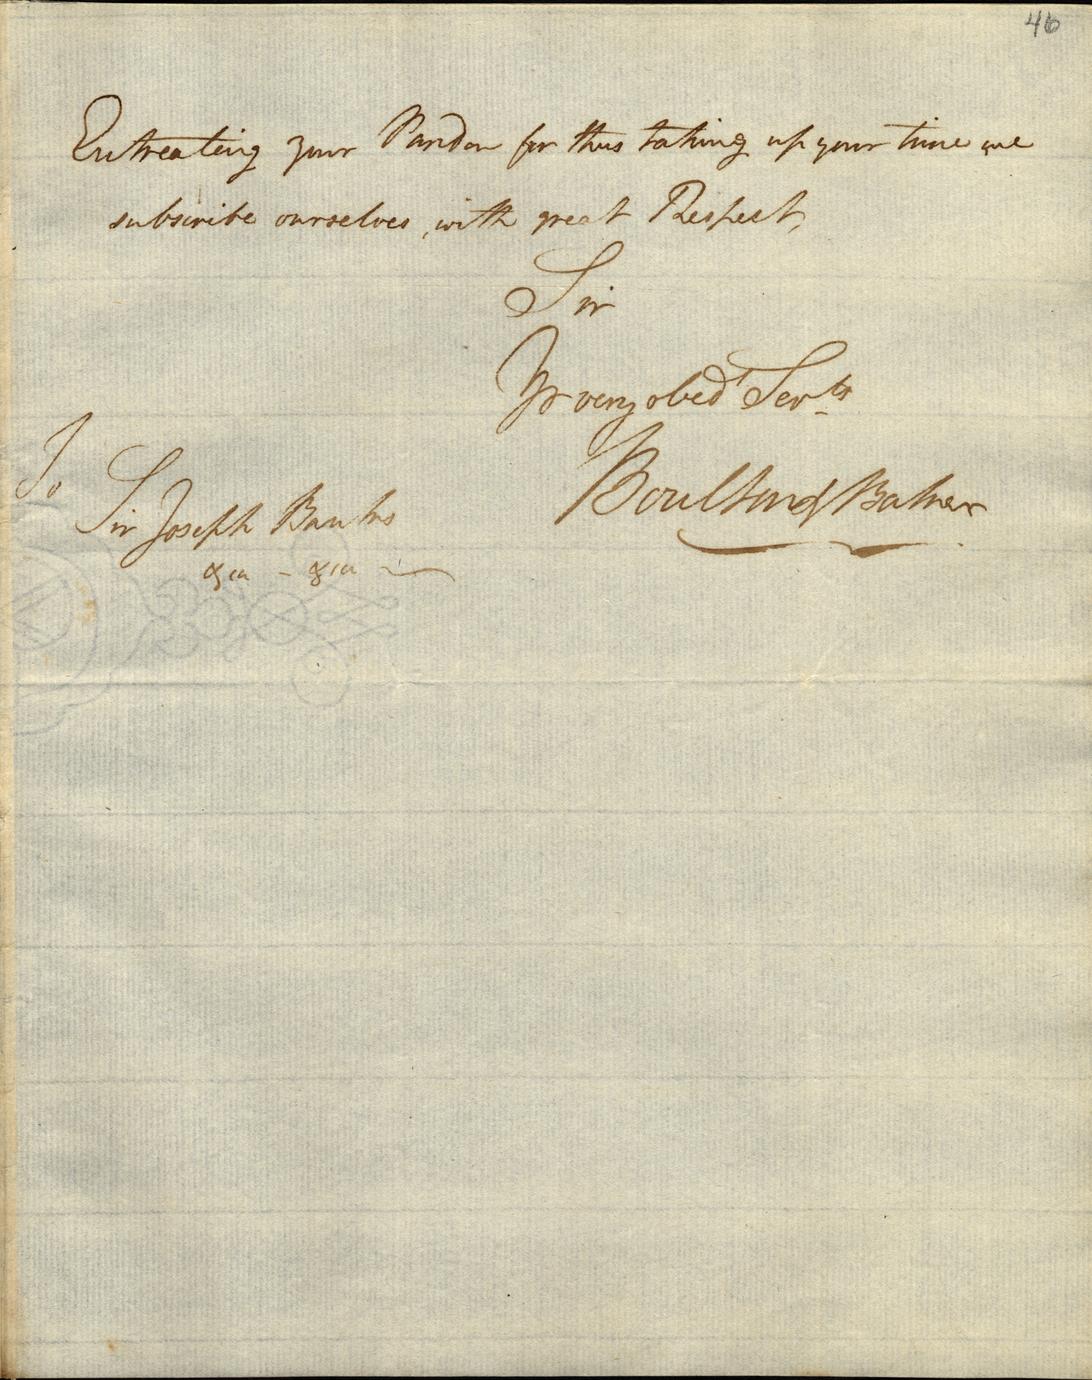 46
Entreating your Pardon for thus taking up your time we
subscribe ourselves, with great Respect,
Sir
Yr very obedt Servts
Boulton & Baker
To
Sir Joseph Banks
&ca - &ca -